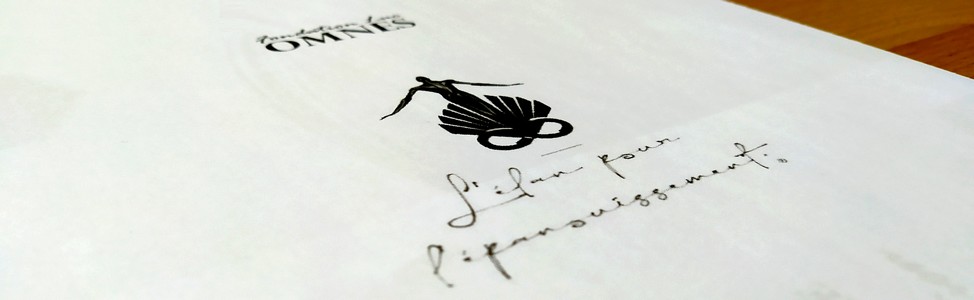 Fondation
OMNES
L'élan pour
l'épanouissement.